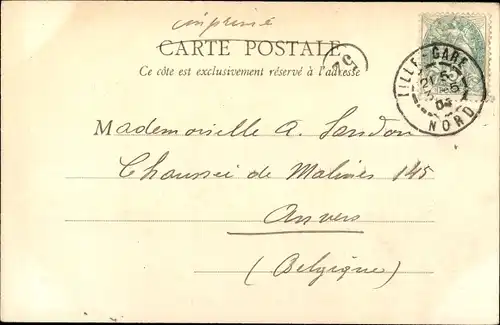 imprimé
CARTE POSTALE
Ce côté est exclusivement réservé à l'adresse
LILLE-GARE
NORD
04
Mademoiselle A. Sandon
Chaussée de Malines 145
Anvers
(Belgique)